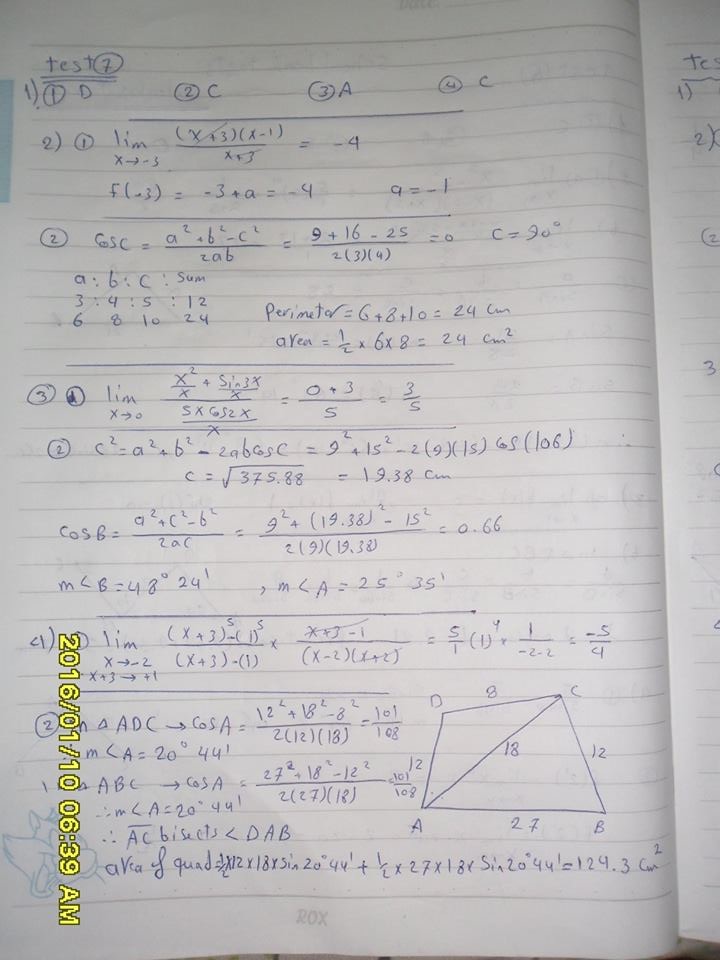 Date.
test ⑦
1) ① D ② C ③ A ④ C
2) ① lim x→-3 (x+3)(x-1) / x+3 = -4
f(-3) = -3+a = -4 a = -1
② cos C = a²+b²-c² / 2ab = 9+16-25 / 2(3)(4) = 0 C = 90°
a : b : c : sum
3 : 4 : 5 : 12
6 8 10 24
Perimeter = 6+8+10 = 24 cm
area = 1/2 × 6 × 8 = 24 cm²
③ ① lim x→0 (x²/x + sin3x/x) / (5x cos2x / x) = 0+3 / 5 = 3/5
② c² = a²+b² - 2ab cos C = 9²+15²-2(9)(15) cos(106)
c = √375.88 = 19.38 cm
cos B = a²+c²-b² / 2ac = 9²+(19.38)²-15² / 2(9)(19.38) = 0.66
m<B = 48° 24' , m<A = 25° 35'
4) ① lim x→-2 x+3→+1 (x+3)⁵-(1)⁵ / (x+3)-(1) × x+3-1 / (x-2)(x+2) = 5/1 (1)⁴ × 1 / -2-2 = -5/4
② In △ ADC → cos A = 12²+18²-8² / 2(12)(18) = 101/108
m<A = 20° 44'
△ ABC → cos A = 27²+18²-12² / 2(27)(18) = 101/108
∴ m<A = 20° 44'
∴ AC bisects < DAB
D 8 C
12 18 12
A 27 B
area of quad = 1/2 × 12 × 18 × sin 20° 44' + 1/2 × 27 × 18 × sin 20° 44' = 124.3 cm²
ROX
2016/01/10 06:39 AM
tes
1)
2)
②
3